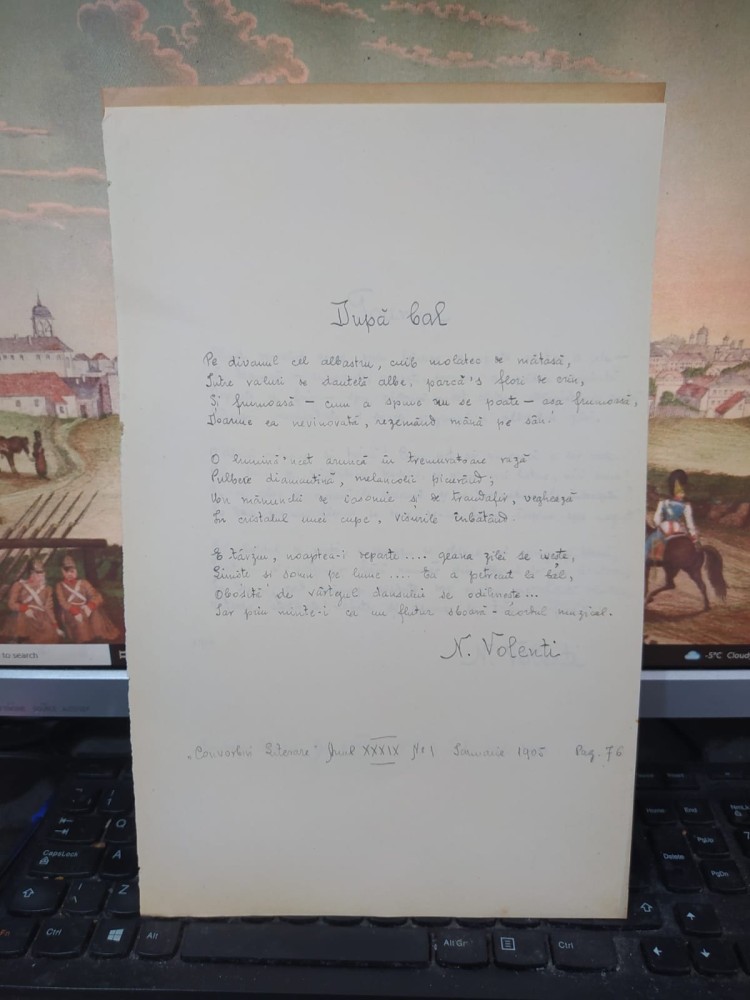 După bal
Pe divanul cel albastru, cuib molatec de mătasă,
Între valuri de dantelă albe, parcă's flori de crin,
Și frumoasă — cum a spune nu se poate — așa frumoasă,
Doarme ea nevinovată, rezemând mâna pe sân.
O lumină'ncet aruncă în tremurătoare rază
Pulbere diamantină, melancolii picurând;
Un mănunchi de iasomie și de trandafir, veghează
În cristalul unei cupe, visurile îmbătând.
E târziu, noaptea-i departe .... geana zilei se ivește,
Liniște și somn pe lume .... Ea a petrecut la bal,
Obosită de vârtejul dansului se odihnește...
Iar prin minte-i ca un flutur sboară - acordul muzical.
N. Volenti
„Convorbiri Literare" Anul XXXIX № 1 Ianuarie 1905 Pag. 76
to search
-5°C Cloudy
CapsLock
Q
A
Z
Ctrl
Alt
Alt Gr
Ctrl
Home
End
Delete
PgUp
PgDn
NumLk
7
Fn